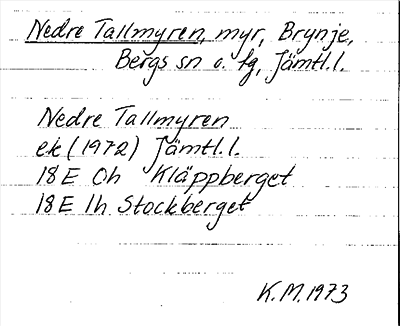 Nedre Tallmyren, myr, Brynje,
Bergs sn o. tg, Jämtl.l.
Nedre Tallmyren
ek (1972) Jämtl.l.
18E 0h Kläppberget
18E 1h Stockberget
K.M. 1973